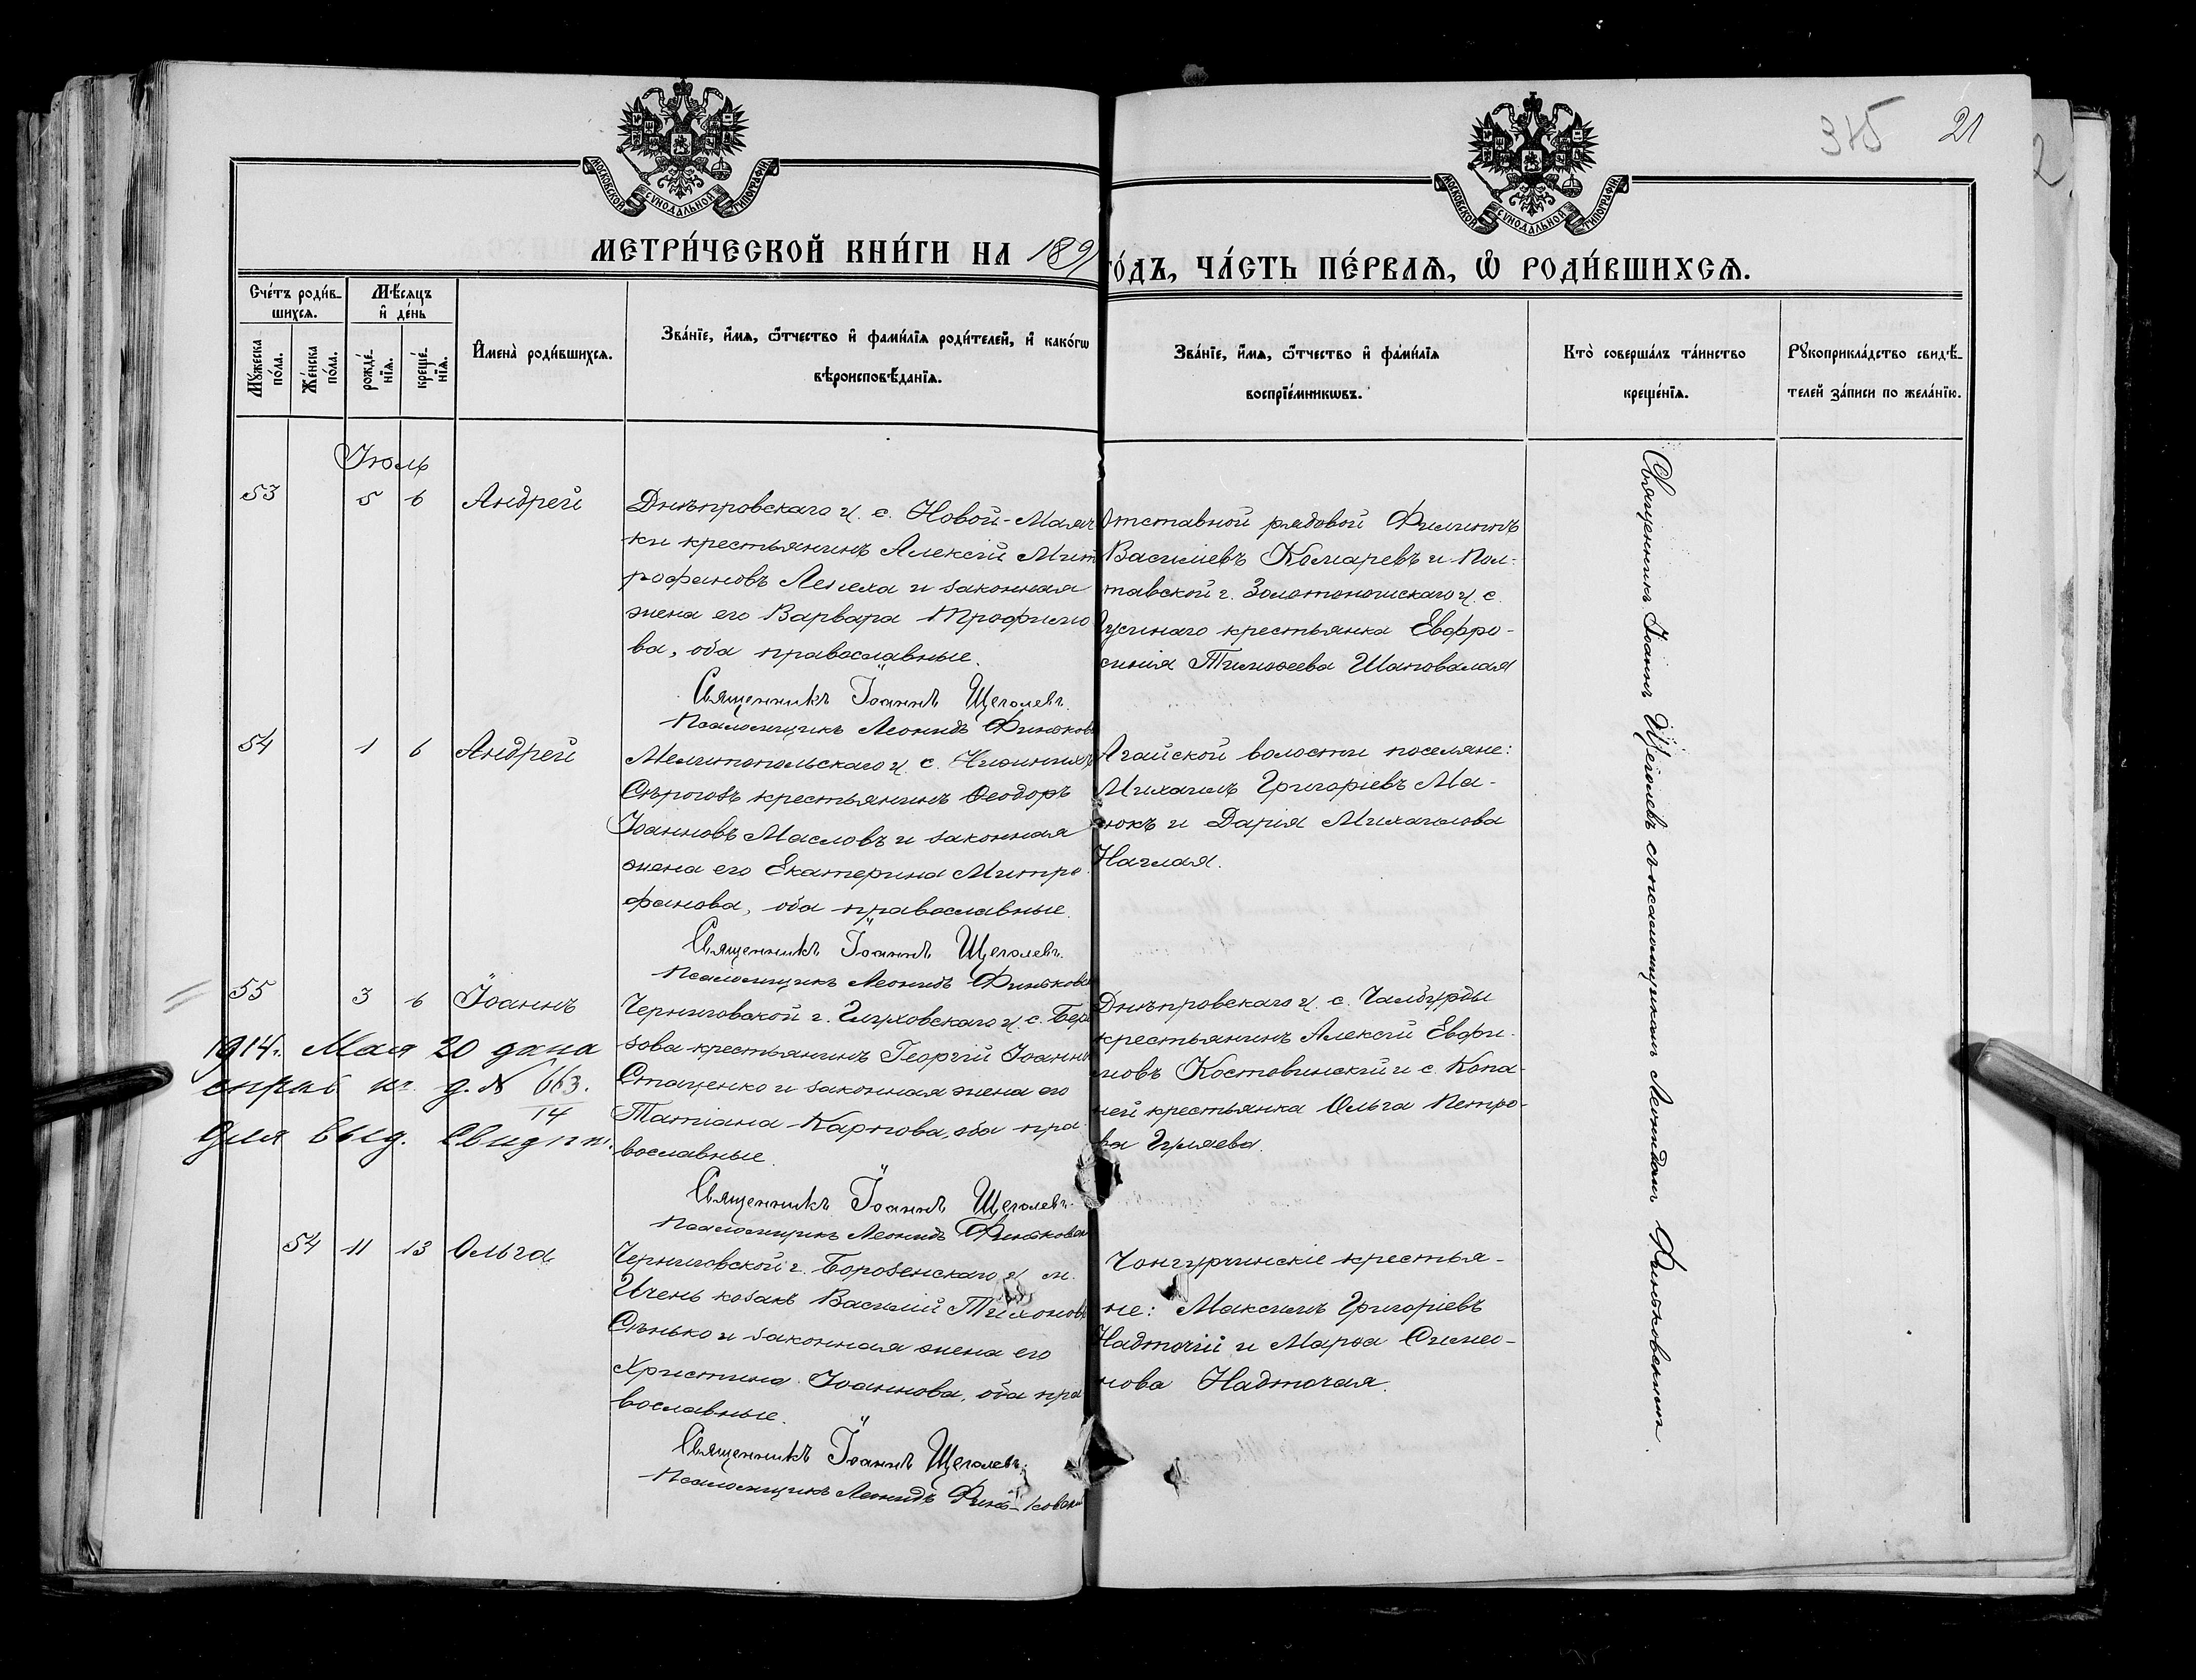 345 21
МОСКОВСКОЙ СѴНОДАЛЬНОЙ ТИПОГРАФІИ
МОСКОВСКОЙ СѴНОДАЛЬНОЙ ТИПОГРАФІИ
МЕТРИ́ЧЕСКОЙ КНИ́ГИ НА 189
ГО́ДЪ, ЧА́СТЬ ПЕ́РВАѦ, Ѽ РОДИ́ВШИХСѦ.
Сче́тъ роди́в-
шихсѧ.
Мꙋ́жеска по́ла.
Же́нска по́ла.
Мѣ́сѧцъ
и҆ де́нь
рожде́-
нїѧ.
креще́-
нїѧ.
И҆мена̀ роди́вшихсѧ.
Зва́нїе, и҆́мѧ, ѻ҆́тчество и҆ фами́лїѧ роди́телей, и҆ како́гѡ
вѣроисповѣ́данїѧ.
Зва́нїе, и҆́мѧ, ѻ҆́тчество и҆ фами́лїѧ
воспрїе́мникѡвъ.
Кто̀ соверша́лъ та́инство
креще́нїѧ.
Рꙋкоприкла́дство свидѣ́-
телей за́писи по жела́нїю.
Іюль
53 5 6 Андрей
Днѣпровскаго у. с. Новой-Маяч
ки крестьянинъ Алексій Мит
рофановъ Лепеха и законная
жена его Варвара Трофимо
ва, оба православные.
Священникъ Іоаннъ Щеголевъ.
Псаломщикъ Леонидъ Финьков
Отставной рядовой Филиппъ
Василіевъ Комаревъ и Пол-
тавской г. Золотоношскаго у. с.
крестьянка Евфро-
синія Тимоѳеева Шаповалая
54 1 6 Андрей
Мелитопольскаго у. с. Нижнихъ
Сѣрогозъ крестьянинъ Ѳеодоръ
Іоанновъ Масловъ и законная
жена его Екатерина Митро
фанова, оба православные.
Священникъ Іоаннъ Щеголевъ.
Псаломщикъ Леонидъ Финьков
Агайской волости поселяне:
Михаилъ Григоріевъ Ма-
нюкъ и Дарія Михаилова
Наглая.
55 3 6 Іоаннъ
Черниговской г. Глуховскаго у. с. Бере
зова крестьянинъ Георгій Іоанно
Стаценко и законная жена его
Татіана Карпова, оба пра
вославные.
Священникъ Іоаннъ Щеголевъ.
Псаломщикъ Леонидъ Финьковск
1914г. Мая 20 дана
справ. д. № 663.
14
для выд. Свидѣт.
Днѣпровскаго у. с. Чалбурды
крестьянинъ Алексій Евфи-
мовъ Костовинскій и с. Копа-
ней крестьянка Ольга Петро-
ва Гуляева.
54 11 13 Ольга
Черниговской г. Борозенскаго у. м.
Ичень козакъ Василій Тихоновъ
Сѣнько и законная жена его
Христина Іоаннова, оба пра
вославные.
Священникъ Іоаннъ Щеголевъ.
Псаломщикъ Леонидъ Финь-ковски
Чонгурчинскіе крестья-
не: Максимъ Григоріевъ
Надточій и Марѳа Симео-
нова Надточая.
Священникъ Іоаннъ Щеголевъ съ псаломщикомъ Леонидомъ Финьковскимъ.